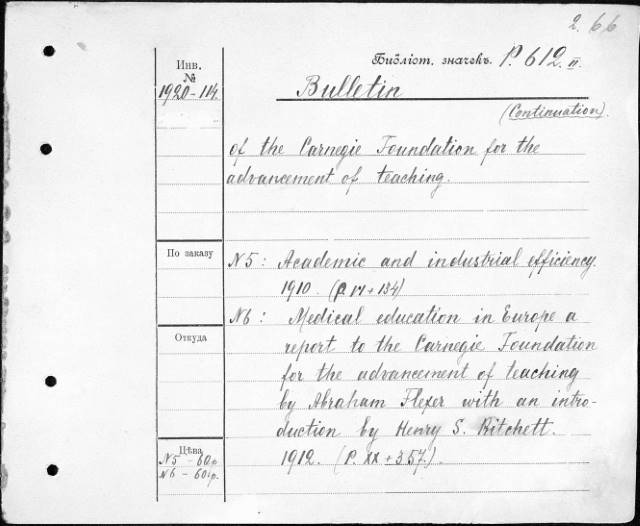 2.66
Инв.
№
1920-114
Библіот. значекъ. P. 612. II.
Bulletin
(Continuation).
of the Carnegie Foundation for the
advancement of teaching.
По заказу
N5: Academic and industrial efficiency.
1910. (p. + 134)
N6: Medical education in Europe a
Откуда
report to the Carnegie Foundation
for the advancement of teaching
by Abraham Flexer with an intro-
duction by Henry S. Pitchett.
Цѣна
1912. (P. XX + 357.).
N5 - 60
N6 - 60